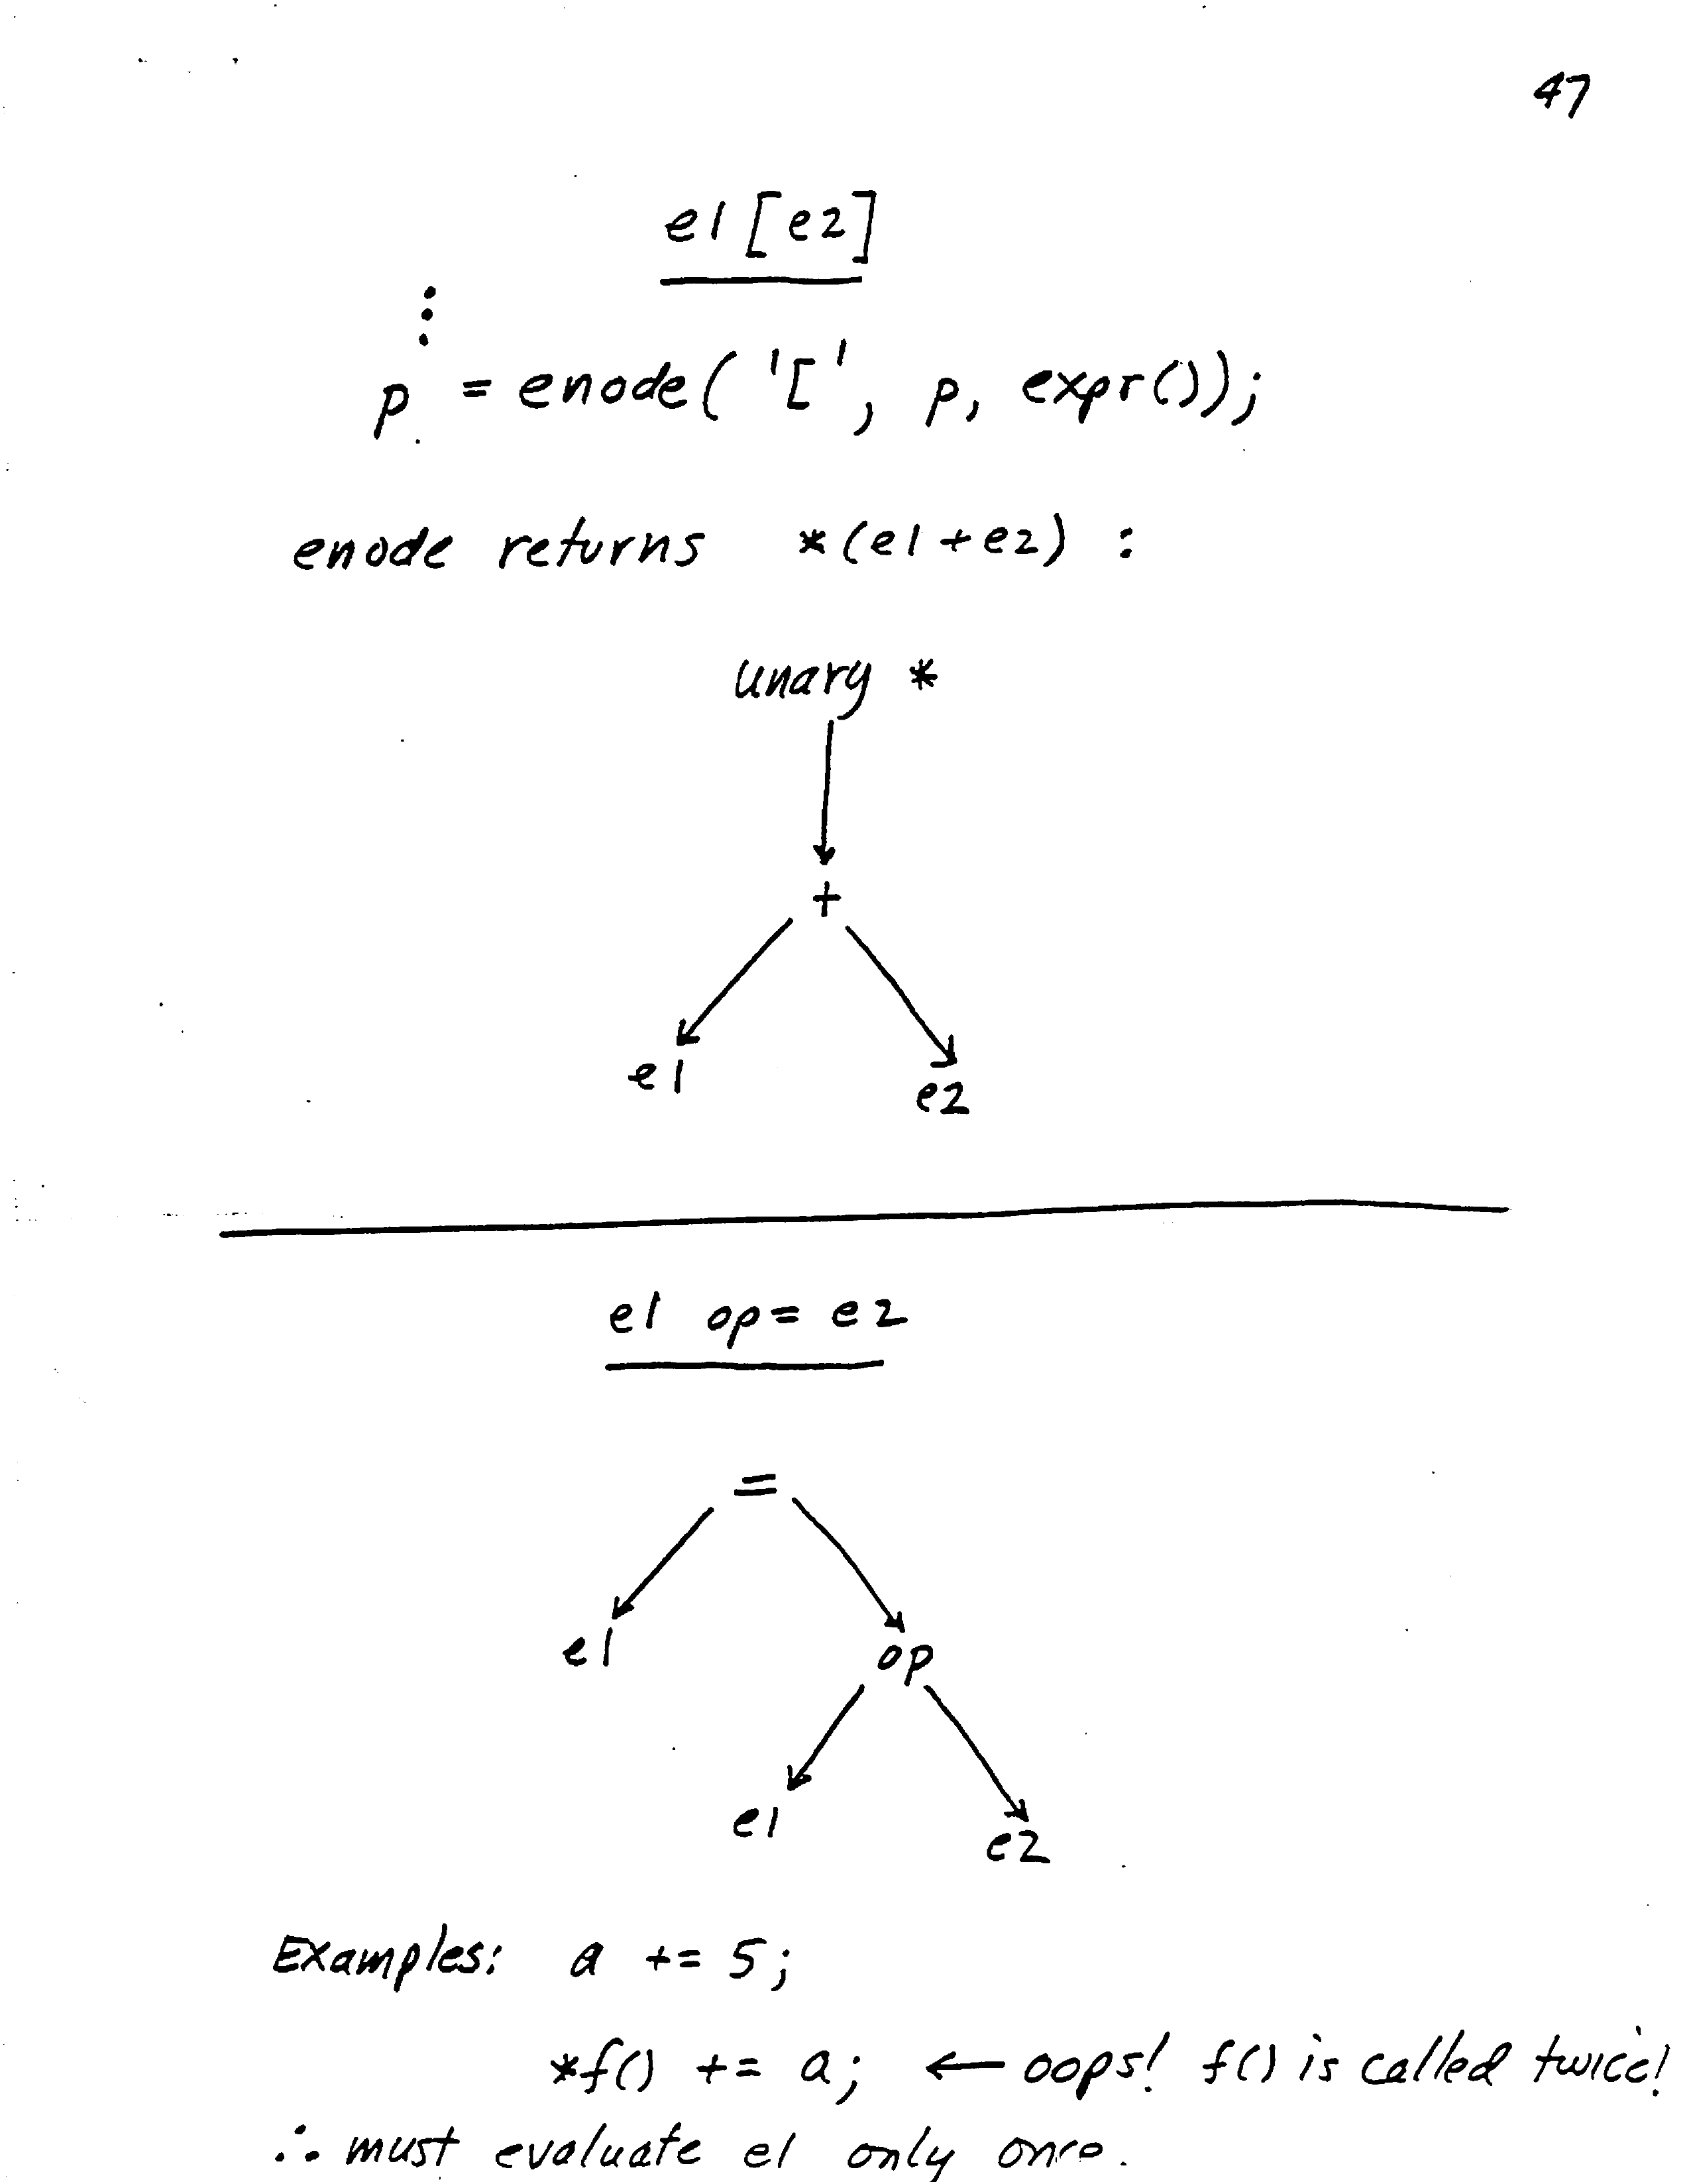 47
e1[e2]
⋮
p = enode( '[', p, expr());
enode returns *(e1+e2) :
unary *
+
e1 e2
e1 op= e2
=
e1 op
e1 e2
Examples: a += 5;
*f() += a; ← oops! f() is called twice!
∴ must evaluate e1 only once.